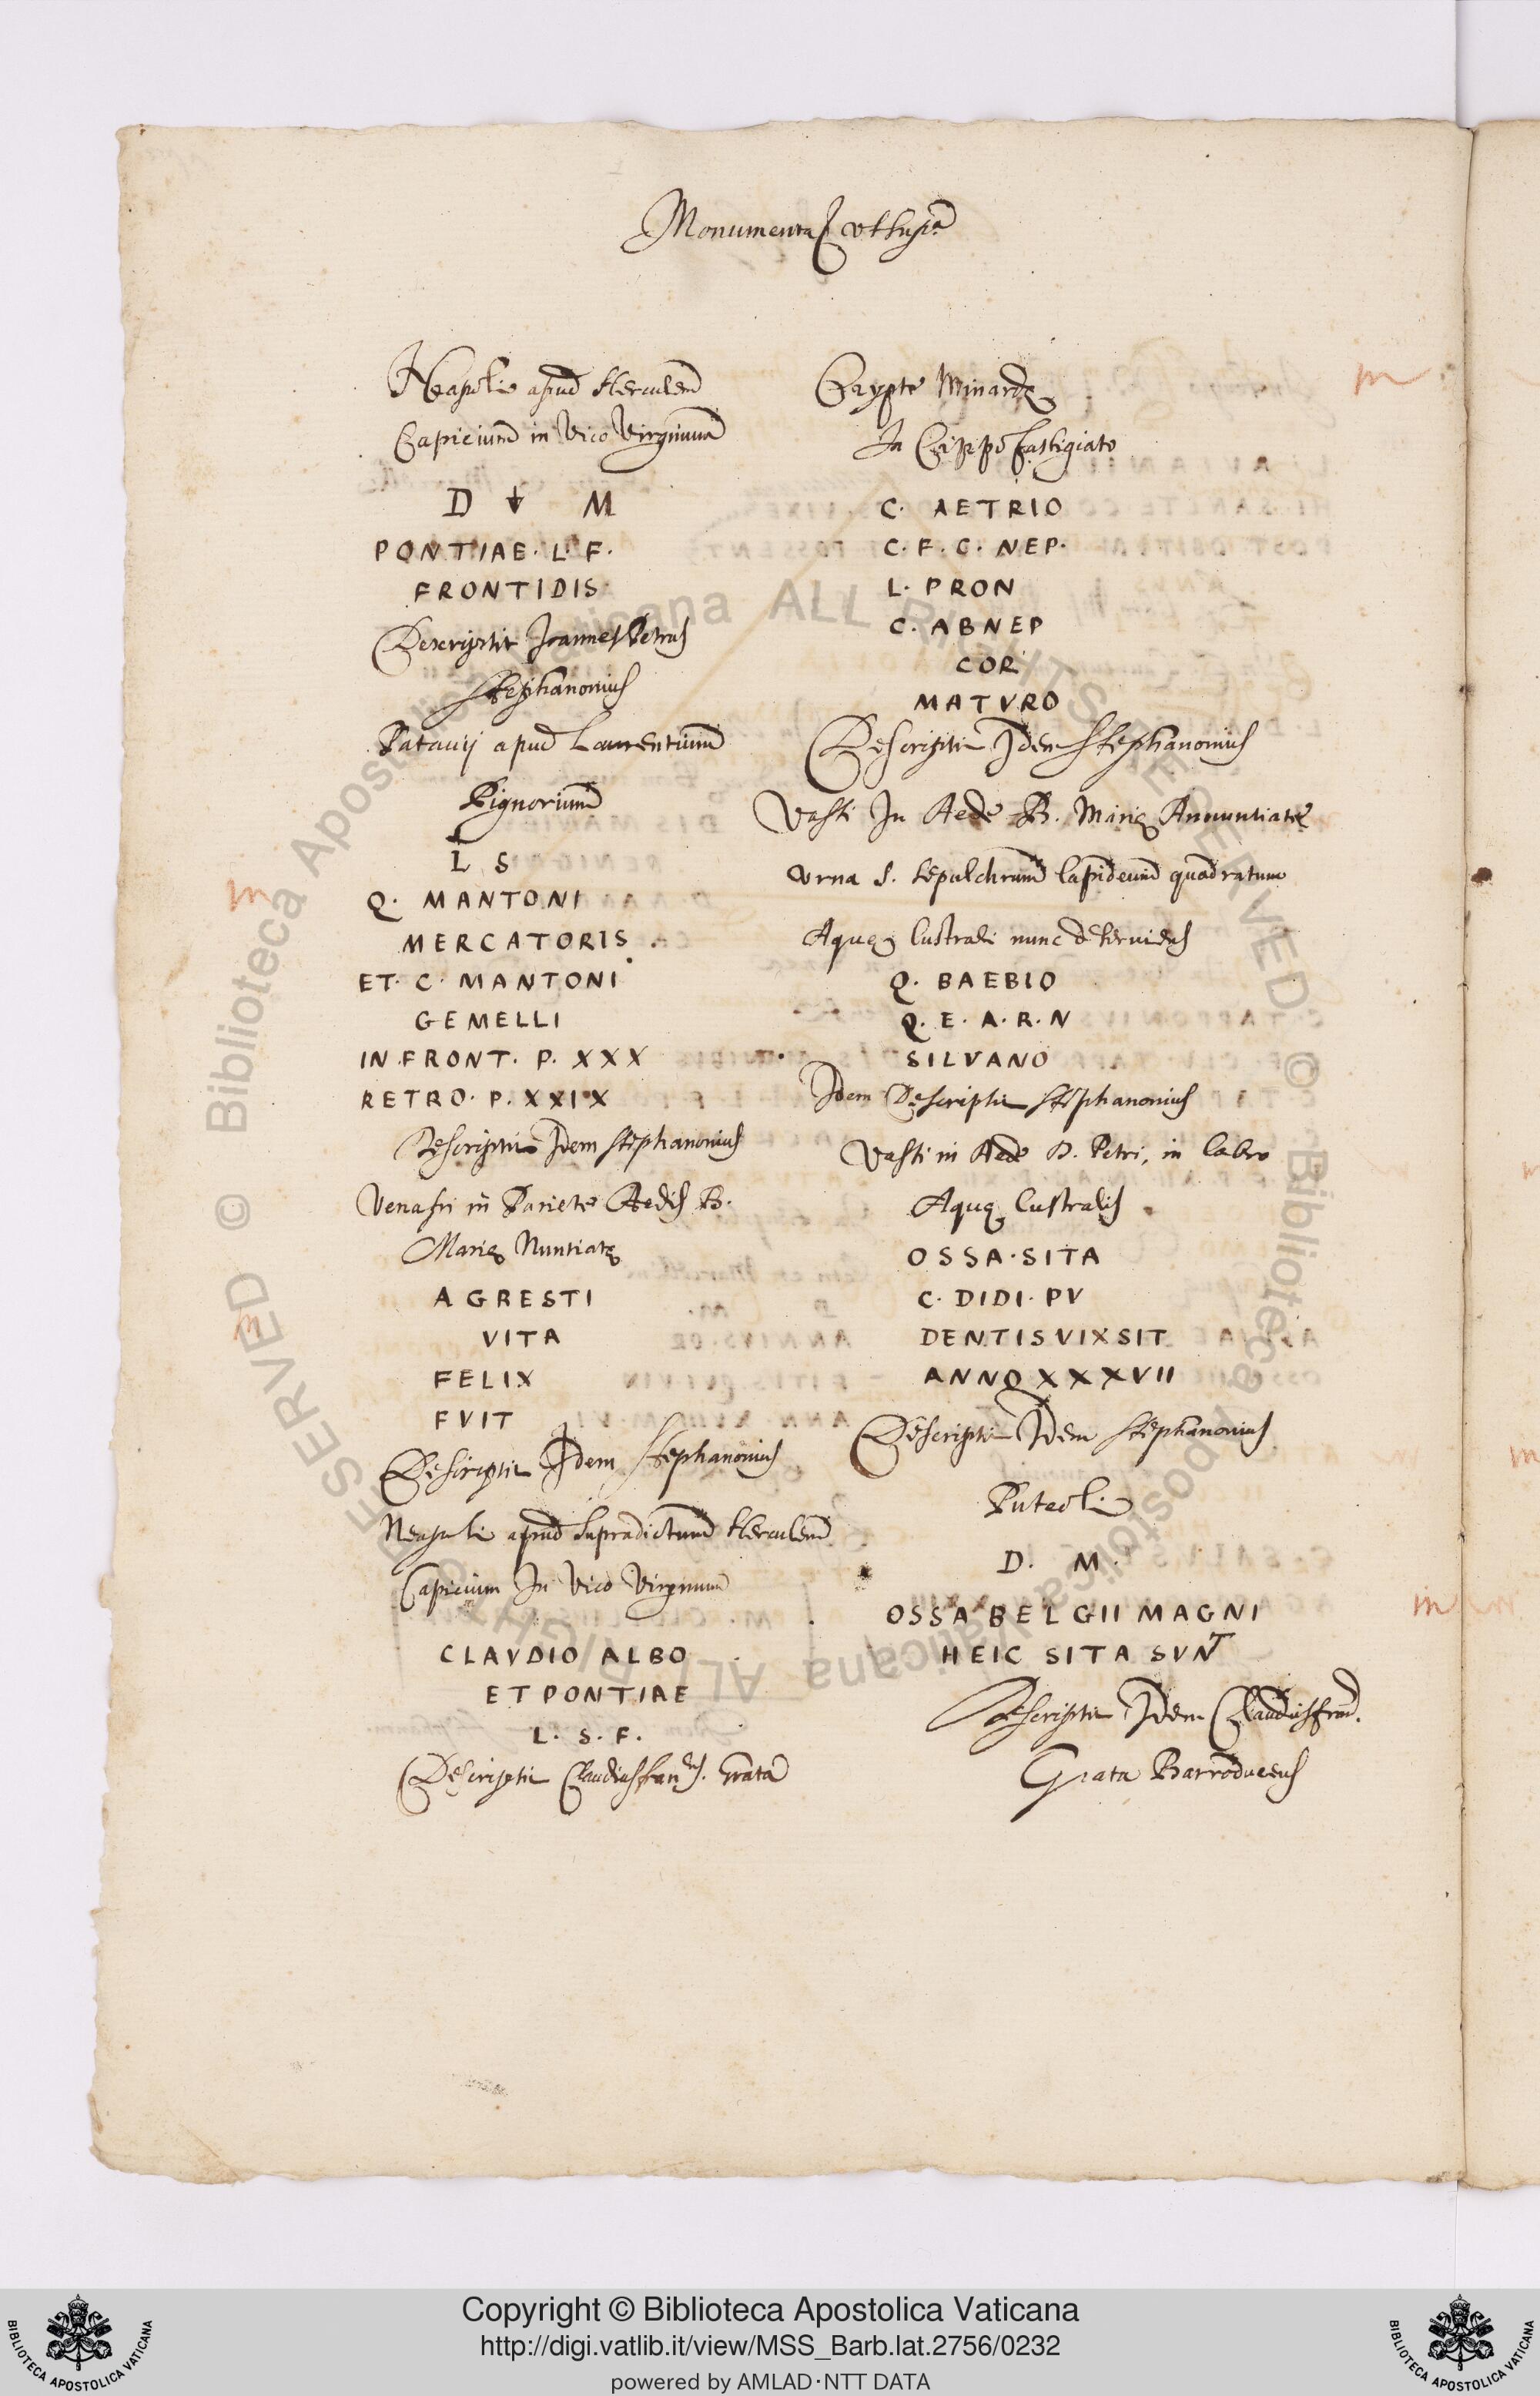 Monumenta ut supra
Neapoli apud Herculem
Capicium in Vico Virginum
D M
PONTIAE. L. F.
FRONTIDIS
Descripsit Joannes Petrus
Stephanonius
Patavij apud Laurentium
Pignorium
L S
Q. MANTONI
MERCATORIS.
ET. C. MANTONI
GEMELLI
IN FRONT. P. XXX
RETRO. P. XXIX
Descripsit Idem Stephanonius
Venafri in Pariete Aedis B.
Marię Nuntiatę
AGRESTI
VITA
FELIX
FVIT
Descripsit Idem Stephanonius
Neapoli apud supradictum Herculem
Capicium In Vico Virginum
CLAVDIO ALBO
ET PONTIAE
L. S. F.
Descripsit Claudius Grata
Crypte Minardę
In Cippo fastigiato
C. AETRIO
C. F. C. NEP.
L. PRON
C. ABNEP
COR
MATVRO
Descripsit Idem Stephanonius
Vasti In Aede B. Marię Annuntiatę
urna s. sepulchrum lapideum quadratum
Aquę lustrali nunc deserviens
Q. BAEBIO
Q. E. A. R. N
SILVANO
Idem Descripsit Stephanonius
Vasti in Aede D. Petri, in labro
Aquę lustralis
OSSA. SITA
C. DIDI. PV
DENTIS VIXSIT
ANNO XXXVII
Descripsit Idem Stephanonius
Puteoli
D. M.
OSSA BELGII MAGNI
HEIC SITA SVNT
Descripsit Idem Claudius
Grata Barroducens
m
m
m
m
© Biblioteca Apostolica Vaticana ALL RIGHTS RESERVED
BIBLIOTECA APOSTOLICA VATICANA
Copyright © Biblioteca Apostolica Vaticana
http://digi.vatlib.it/view/MSS_Barb.lat.2756/0232
powered by AMLAD·NTT DATA
BIBLIOTECA APOSTOLICA VATICANA